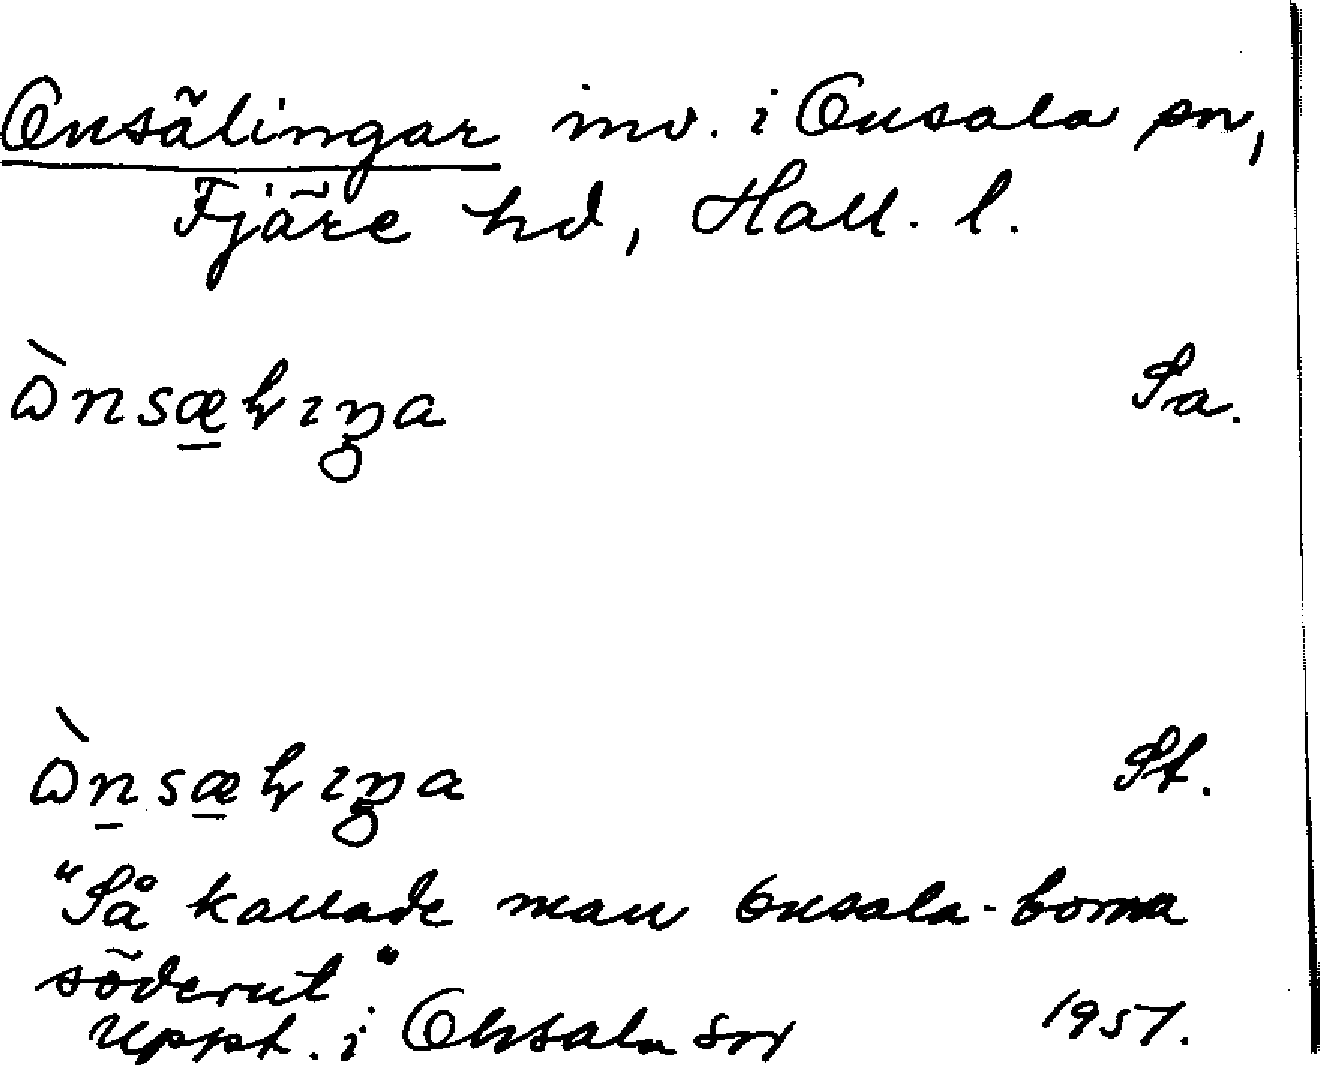 Onsälingar inv. i Onsala sn,
Fjäre hd, Hall. l.
Sa.
St.
"Så kallade man Onsala-borna
söderut"
Uppt. i Onsala sn 1951.